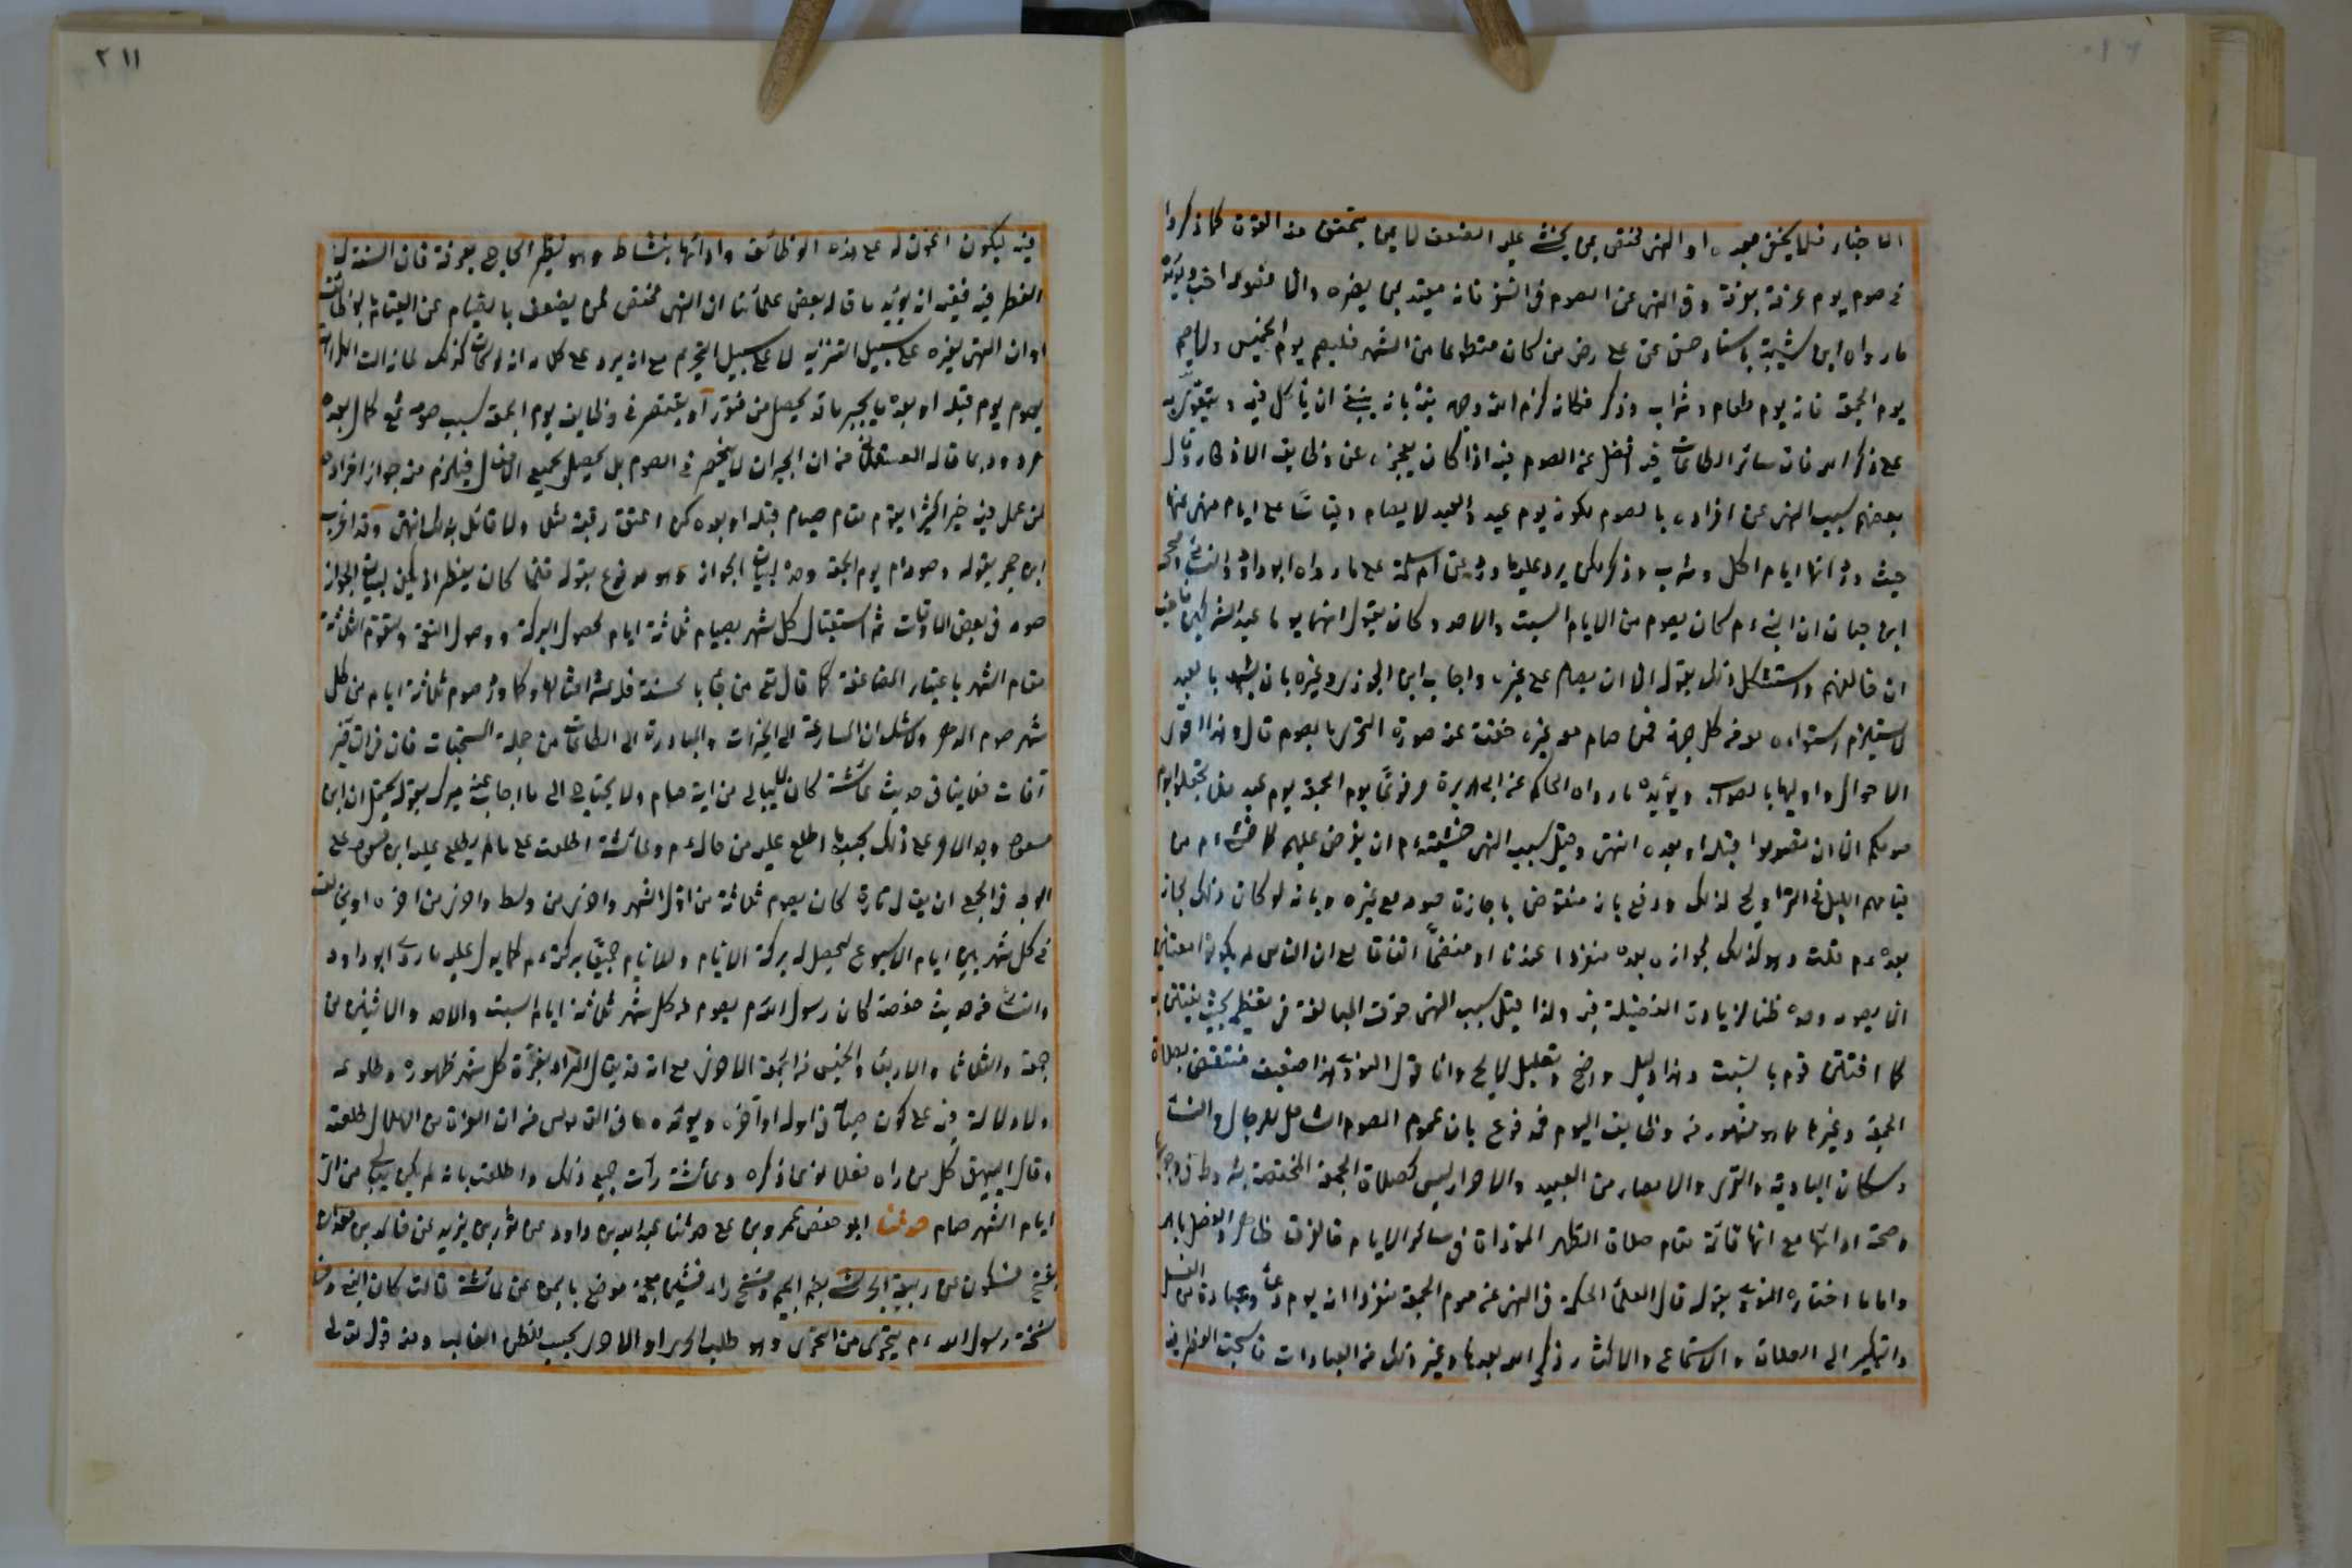 الاخبار فلا يخفى بعده او النهى مختص بمن يخشى عليه الضعف لا بمن يتحقق منه القوة كما ذكروا
فى صوم يوم عرفة بعرفة وفى النهى عن الصوم فى السفر فانه مقيد بمن يضره والا فصومه احب ويؤيده
ما رواه ابن شيبة باسناد حسن عن على رض من كان متطوعا من الشهر فليصم يوم الخميس ولا يصم
يوم الجمعة فانه يوم طعام وشراب وذكر فكانه كرم الله وجهه نبه بانه ينبغى ان ياكل فيه ويتقوى به
على ذكر الله فان سائر الطاعات فيه افضل من الصوم فيه اذا كان يعجزه عن وظايف الاذكار وقال
بعضهم سبب النهى عن افراده بالصوم كونه يوم عيد والعيد لا يصام وقياسا على ايام منهى عنها
حيث ورد انها ايام اكل وشرب وذكر لكن يرد عليه ما ورد عن ام سلمة على ما رواه ابوداود والنسائى وصححه
ابن حبان ان النبى ءم كان يصوم من الايام السبت والاحد وكان يقول انهما يوما عيد المشركين فاحب
ان اخالفهم واستشكل ذلك بقوله الا ان يصام مع غيره واجاب ابن الجوزى وغيره بان شبهه بالعيد
لا يستلزم استواءه معه من كل جهة فمن صام معه غيره انتفت عنه صورة التحرى بالصوم قال وهذا اقوى
الاحوال واوليها بالصواب ويؤيده ما رواه الحاكم عن ابى هريرة مرفوعا يوم الجمعة يوم عيد فلا تجعلوا يوم
صومكم الا ان تصوموا قبله او بعده انتهى وقيل سبب النهى خشيته ءم ان يفرض عليهم كما خشى ءم من
قيامهم الليل فى التراويح لذلك ودفع بانه منقوض باجازة صومه مع غيره وبانه لو كان ذلك لجاز
بعده ءم قلت وهو كذلك لجوازه بعده منفردا عندنا او منضما اتفاقا مع ان الناس لم يكونوا معتنين
الا بصومه وحده ظنا لزيادة الفضيلة فيه ولذا قيل سبب النهى خوف المبالغة فى تعظيمه بحيث يفتتن به
كما افتتن قوم بالسبت وهذا دليل واضح وتعليل لايح واما قول النووى هذا ضعيف منتقض بصلاة
الجمعة وغيرها مما هو مشهور من وظايف اليوم فمدفوع بان عموم الصوم الشامل للرجال والنساء
وسكان البادية والقرى والامصار من العبيد والاحرار ليس كصلاة الجمعة المختصة بشروط فى وجوبها
وصحة ادائها مع انها قائمة مقام صلاة الظهر المؤداة فى سائر الايام فالفرق ظاهر والفضل باهر
واما ما اختاره النووى بقوله قال العلماء الحكمة فى النهى عن صوم الجمعة منفردا انه يوم دعاء وعبادة من الغسل
والتبكير الى الصلاة والاستماع والاكثار ذكر الله بعدها وغير ذلك من العبادات فاستحب الفطر فيه
٢١١
فيه ليكون اعون له على هذه الوظائف وادائها بنشاط وهو نظير الحاج بعرفة فان السنة له
الفطر فيه ففيه انه يؤيد ما قاله بعض علمائنا ان النهى مختص لمن يضعف بالصيام عن القيام بالوظائف
او ان النهى لغيره على سبيل التنزيه لا على سبيل التحريم مع انه يرد على كلامه انه لو كان كذلك
يصوم يوم قبله او بعده يجبر ما قد يحصل من فتور او يقتصر فى وظايف يوم الجمعة بسبب صومه
مردود بما قاله العسقلانى من ان الجبران لا ينحصر فى الصوم بل يحصل بجميع الافعال فيلزم منه جواز افراده
لمن عمل فيه خيرا كثيرا يقوم مقام صيام قبله او بعده كمن اعتق رقبة مثلا ولا قائل بذلك انتهى وقد اغرب
ابن حجر بقوله وصومه ءم يوم الجمعة وحده لبيان الجواز وهو مدفوع بقوله قلما كان يفطر اذ يكفى لبيان الجواز
صومه فى بعض الاوقات ثم استقبال كل شهر بصيام ثلاثة ايام لحصول البركة ووصول النفع وتقوم الثلاثة
مقام الشهر باعتبار المضاعفة كما قال تع من جاء بالحسنة فله عشر امثالها وكما ورد صوم ثلاثة ايام من كل
شهر صوم الدهر ولا شك ان المسارعة الى الخيرات والمبادرة الى الطاعات من جملة المستحبات فان فى التأخير
آفات فلا ينافى حديث عائشة كان لا يبالى من ايه صام ولا يحتاج الى ما اجاب عنه ميرك بقوله يحتمل ان ابن
مسعود وجد الامر على ذلك بحسب ما اطلع عليه من حاله ءم وعائشة اطلعت على ما لم يطلع عليه ابن مسعود على
الوجه فى الجمع ان يقال تارة كان يصوم ثلاثة من اول الشهر واخرى من وسطه واخرى من اخره او يخالف
فى كل شهر بين ايام الاسبوع ليحصل له بركة الايام وللايام جميعا بركته ءم كما يدل عليه ما روى ابو داود
والنسائى من حديث حفصة كان رسول الله ءم يصوم فى كل شهر ثلاثة ايام السبت والاحد والاثنين من
جمعة والثلاثا والاربعا والخميس من الجمعة الاخرى مع انه قد يقال المراد بغرة كل شهر ظهوره وطلوعه
ولا دلالة فيه على كون صيامه فى اوله او آخره ويؤيده ما فى القاموس من ان الغرة من الهلال طلعته
وقال البيهقى كل من راه فعل نوعا ذكره وعائشة رأت جميع ذلك واطلعت بانه لم يكن يبالى من اى
ايام الشهر صام حدثنا ابو حفص عمرو بن على حدثنا عبد الله بن داود عن ثور بن يزيد عن خالد بن معدان
بفتح فسكون عن ربيعة الجرشى بضم الجيم وفتح راء فشين معجمة موضع باليمن عن عائشة قالت كان النبى وفى
نسخة رسول الله ءم يتحرى من التحرى وهو طلب الحرى او الاحرى بحسب الظن الغالب ومنه قوله تعالى